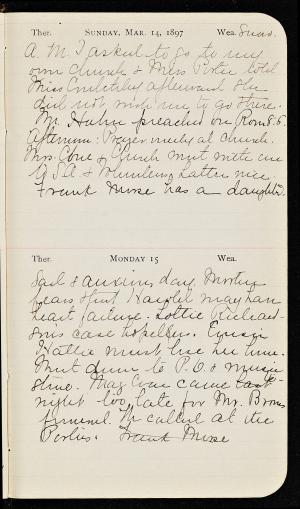 Ther. SUNDAY, MAR. 14, 1897 Wea. Snow.
A. M. I asked to go to my
own Church & Miss Porter told
Miss afterward she
did not want me to go there.
Mr. Hahn preached on Rom 8:5.
Afternoon: Prayer meeting at church.
Mrs. Cone & Church met with us
Y.S.A. & Volunteers, latter nice.
Frank Muse has a daughter.
Ther. MONDAY 15 Wea.
Sad & anxious day. Mother
fears that may have
heart failure. Lottie
case hopeless. Cousin
Hattie must live her time.
Went down to P.O. & music
store. May came
night too late for Mr.
funeral. He called at the
Porters. Frank Muse